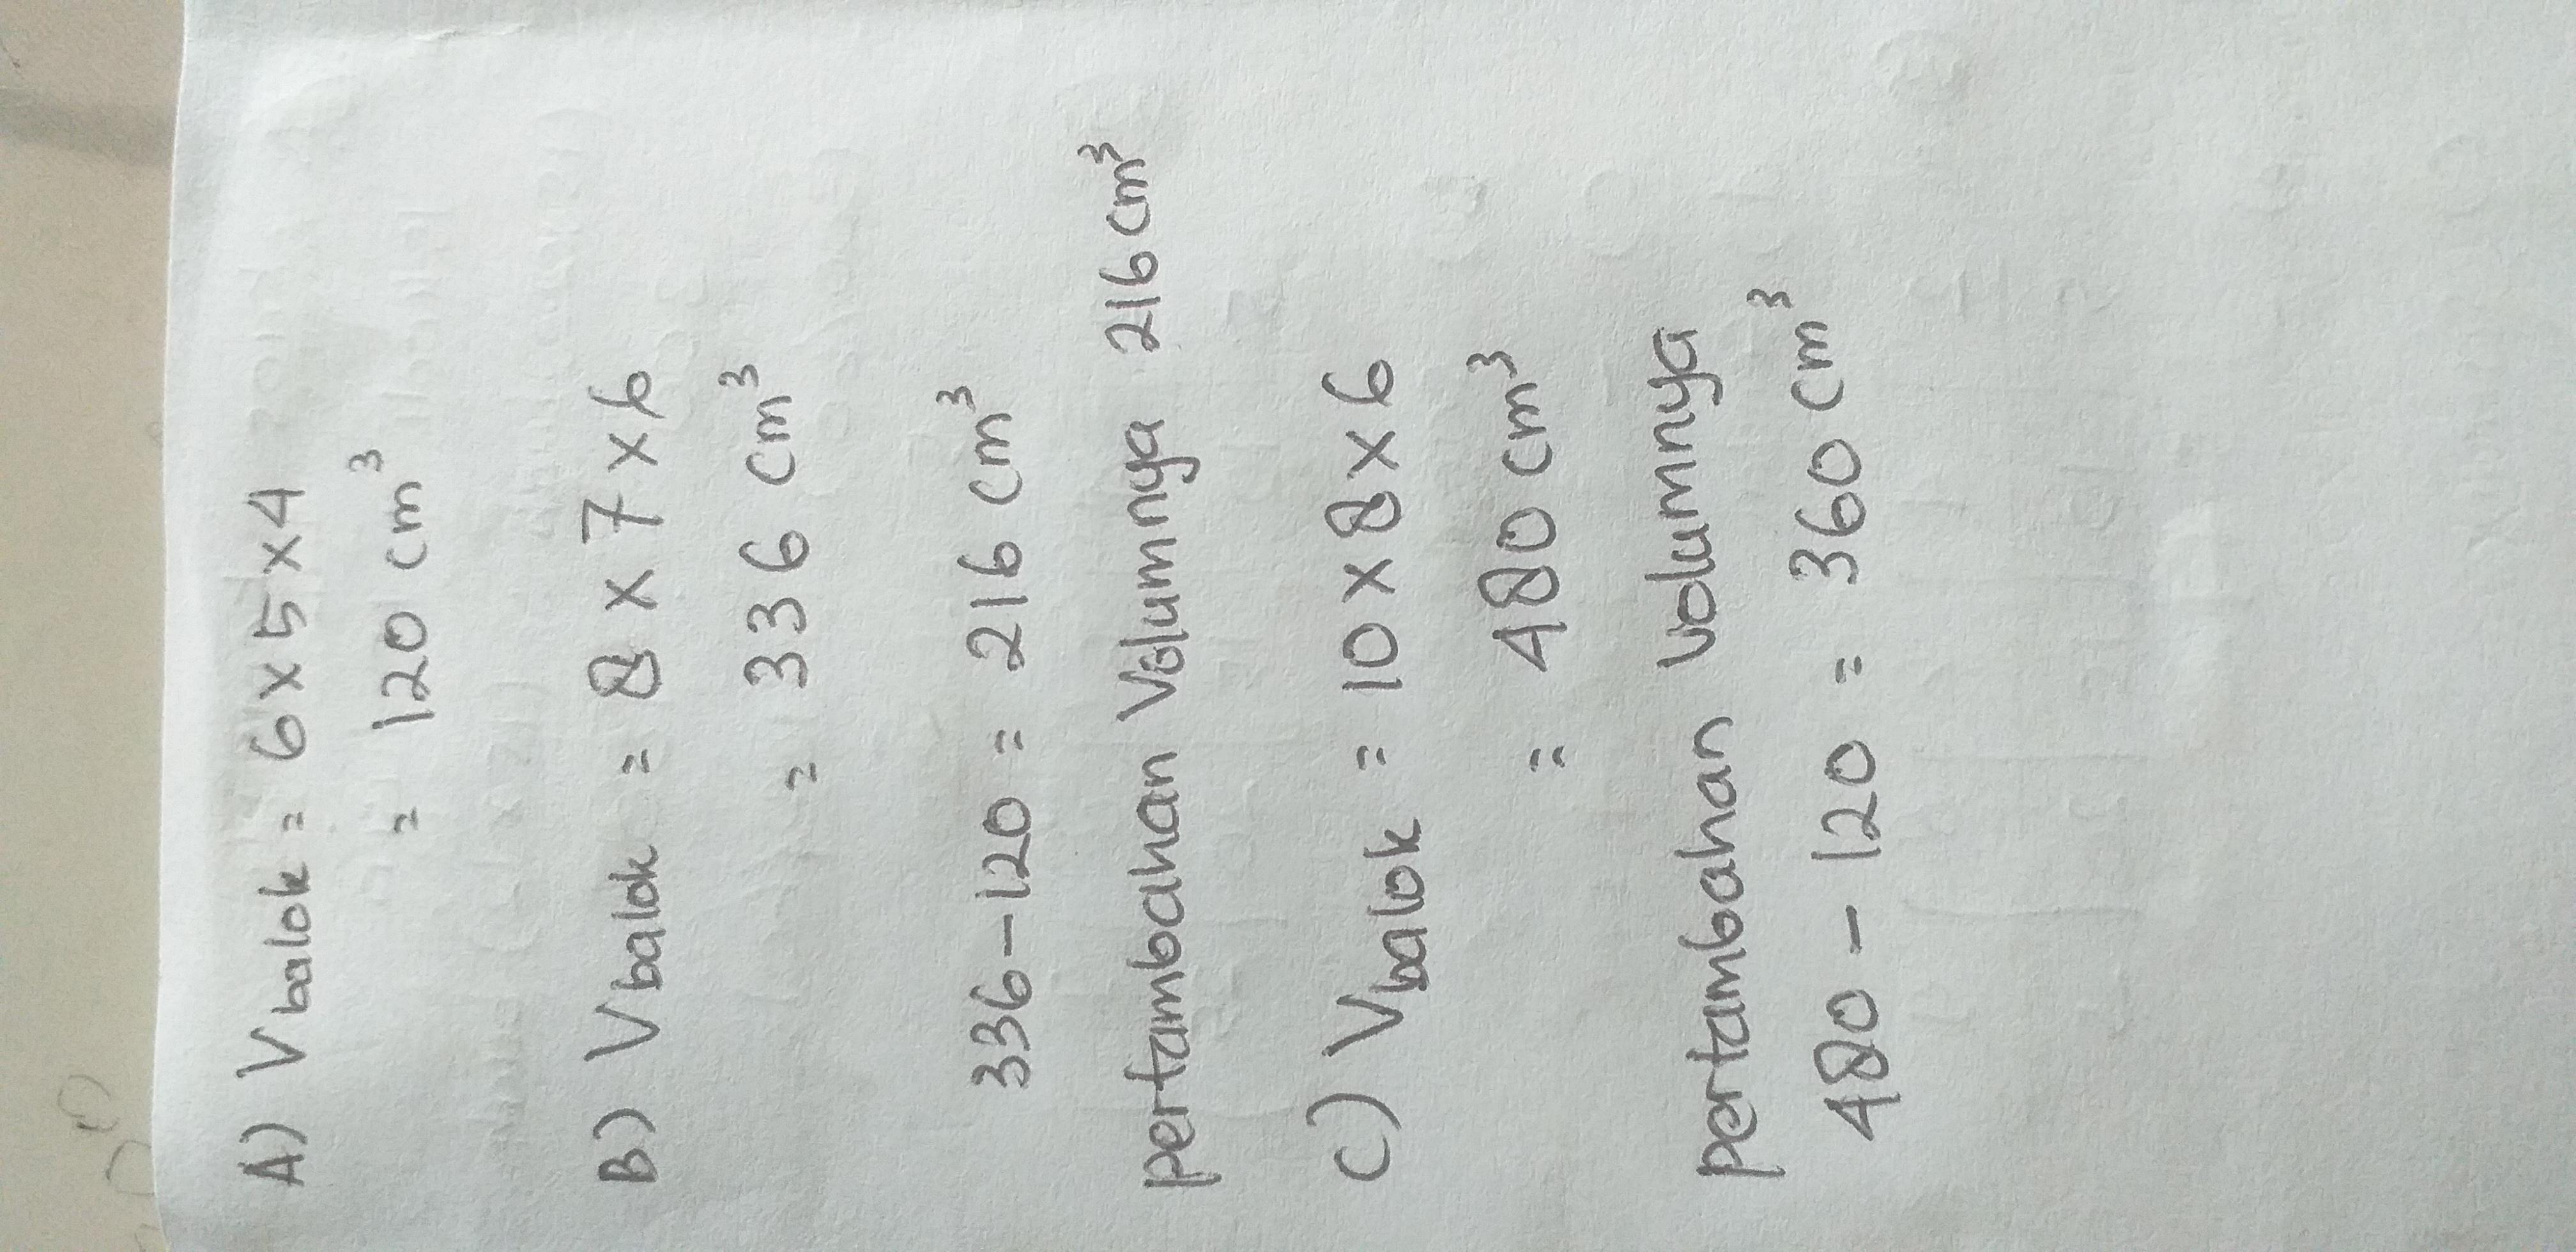 A) V balok = 6 x 5 x 4
= 120 cm³
B) V balok = 8 x 7 x 6
= 336 cm³
336 - 120 = 216 cm³
pertambahan Volumnya 216 cm³
C) V balok = 10 x 8 x 6
= 480 cm³
pertambahan volumnya
480 - 120 = 360 cm³